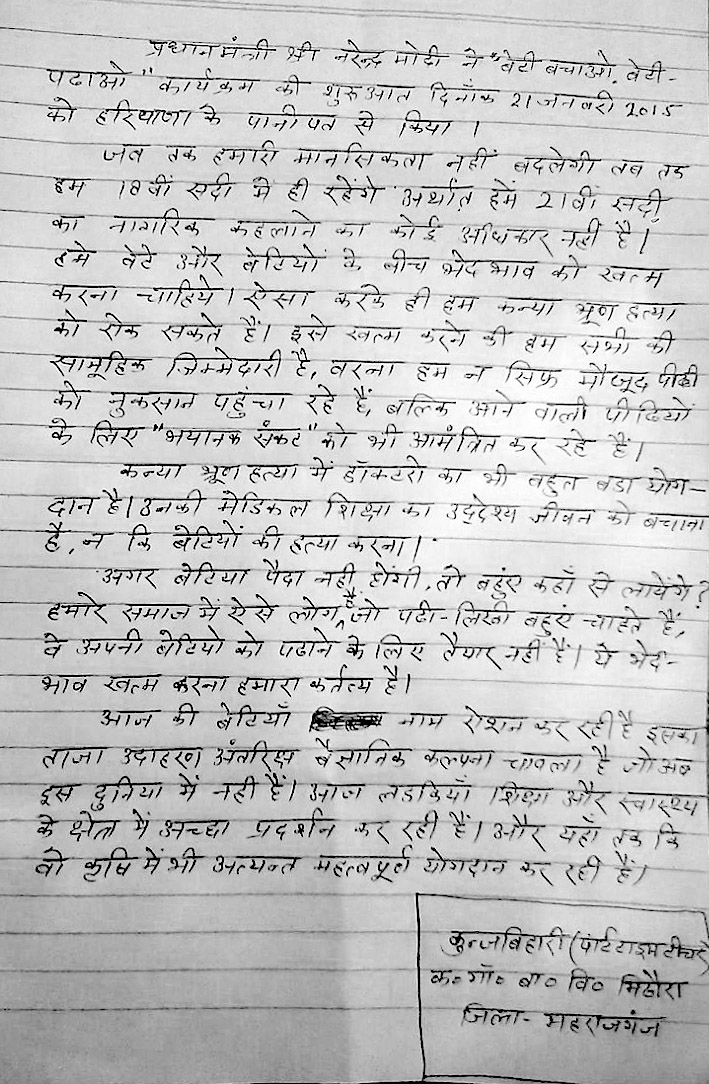 प्रधानमंत्री श्री नरेन्द्र मोदी ने "बेटी बचाओ, बेटी-
पढाओ" कार्यक्रम की शुरुआत दिनाँक 21 जनवरी 2015
को हरियाणा के पानीपत से किया ।
जब तक हमारी मानसिकता नहीं बदलेगी तब तक
हम 18वीं सदी में ही रहेंगे अर्थात् हमें 21वीं सदी
का नागरिक कहलाने का कोई अधिकार नहीं है।
हमे बेटे और बेटियों के बीच भेदभाव को खत्म
करना चाहिये। ऐसा करके ही हम कन्या भ्रूण हत्या
को रोक सकते हैं। इसे खत्म करने की हम सभी की
सामूहिक जिम्मेदारी है, वरना हम न सिर्फ मौजूद पीढी
को नुकसान पहुंचा रहे हैं, बल्कि आने वाली पीढियो
के लिए "भयानक संकट" को भी आमंत्रित कर रहे हैं।
कन्या भ्रूण हत्या में डॉक्टरो का भी बहुत बडा योग-
दान है। उनकी मेडिकल शिक्षा का उद्देश्य जीवन को बचाना
है, न कि बेटियों की हत्या करना।
अगर बेटिया पैदा नही होंगी, तो बहुंए कहाँ से लायेंगे?
हमारे समाज में ऐसे लोग हैं, जो पढी-लिखी बहुएं चाहते हैं,
वे अपनी बेटियो को पढाने के लिए तैयार नहीं हैं। ये भेद-
भाव खत्म करना हमारा कर्तव्य है।
आज की बेटियाँ नाम रोशन कर रही है इसका
ताजा उदाहरण अंतरिक्ष वैज्ञानिक कल्पना चावला है जो अब
इस दुनिया में नहीं हैं। आज लडकियाँ शिक्षा और स्वास्थ्य
के क्षेत्र में अच्छा प्रदर्शन कर रही हैं। और यहाँ तक कि
वो कृषि में भी अत्यन्त महत्वपूर्ण योगदान कर रही हैं।
कुन्जबिहारी (पार्ट टाइम टीचर)
क॰ गाँ॰ बा॰ वि॰ मिठौरा
जिला - महराजगंज